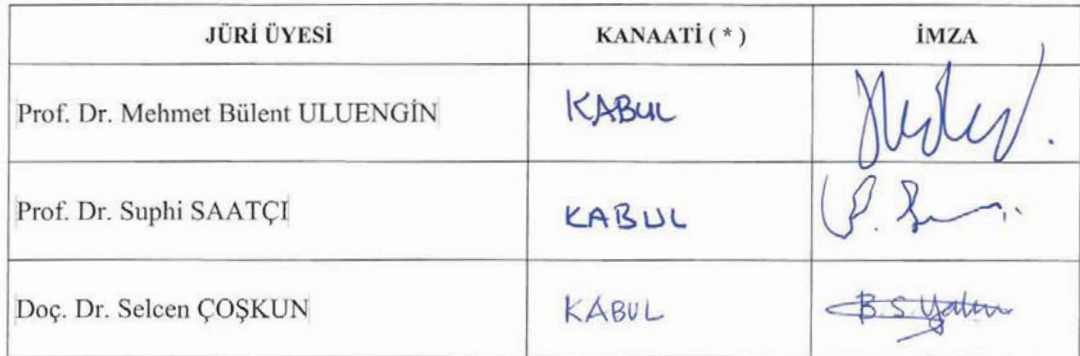 JÜRİ ÜYESİ KANAATİ ( * ) İMZA
Prof. Dr. Mehmet Bülent ULUENGİN KABUL
Prof. Dr. Suphi SAATÇI KABUL
Doç. Dr. Selcen ÇOŞKUN KABUL B.S.Yalın